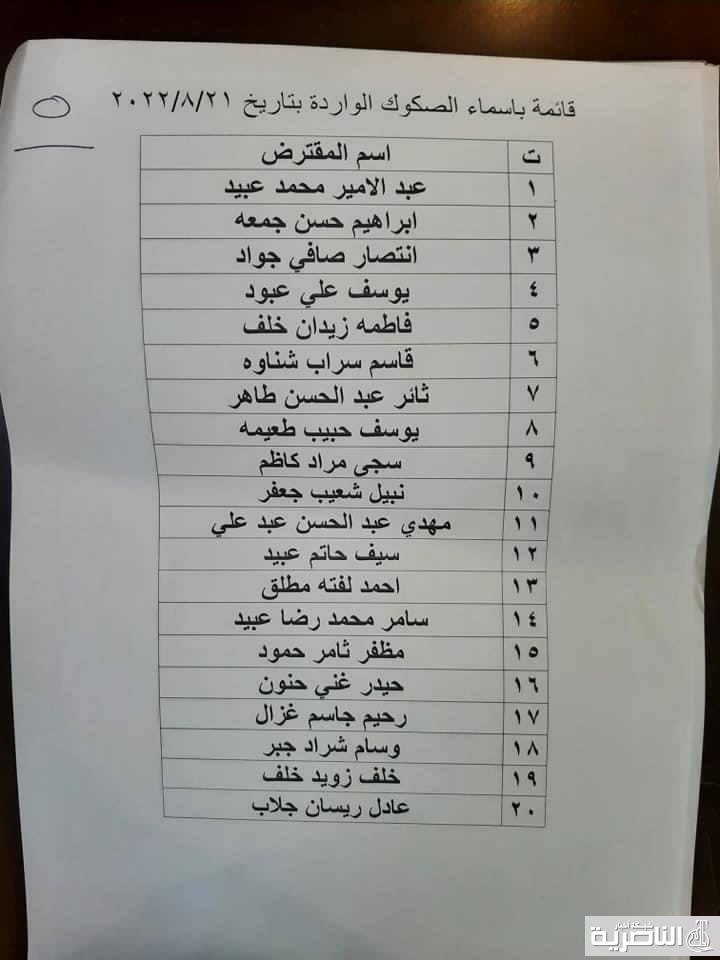 قائمة باسماء الصكوك الواردة بتاريخ ٢٠٢٢/٨/٢١
ت اسم المقترض
١ عبد الامير محمد عبيد
٢ ابراهيم حسن جمعه
٣ انتصار صافي جواد
٤ يوسف علي عبود
٥ فاطمه زيدان خلف
٦ قاسم سراب شناوه
٧ ثائر عبد الحسن طاهر
٨ يوسف حبيب طعيمه
٩ سجى مراد كاظم
١٠ نبيل شعيب جعفر
١١ مهدي عبد الحسن عبد علي
١٢ سيف حاتم عبيد
١٣ احمد لفته مطلق
١٤ سامر محمد رضا عبيد
١٥ مظفر ثامر حمود
١٦ حيدر غني حنون
١٧ رحيم جاسم غزال
١٨ وسام شراد جبر
١٩ خلف زويد خلف
٢٠ عادل ريسان جلاب
الناصرية